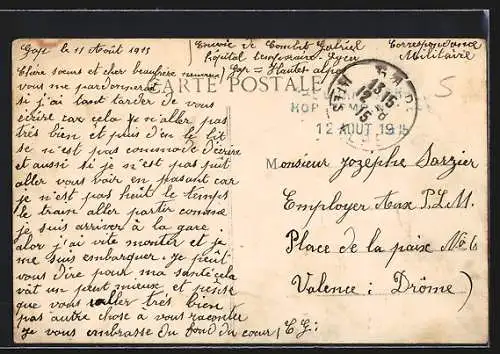 Gap le 11 Août 1915
Envoie de Combet Gabriel
hôpital temporaire Lycee
Gap = Hautes alpes
Correspondance
Militaire
CARTE POSTALE
5
HOP
12 AOUT 1915
Chère soeurs et cher beaufrère
vous me pardonnerai
si j'ai tant tarder de vous
écrire car cela je n'aller pas
très bien et puis d'en le lit
se n'est pas commode d'écrire
et aussi si je n'est pas puit
aller vous voir en pasant car
je n'est pas huit le temps
le train aller partir comme
je suis arriver à la gare.
alor j'ai vite monter et je
me suis embarquer. Je peut
vous dire pour ma santé cela
vat un peut mieux et pense
que vous aller très bien
pas autre chose à vous raconter
Je vous embrasse du fond du coeur, C G:
Monsieur Jozephe Sarzier
Employer Aax P.L.M.
Place de la paix No 6
Valence (Drôme)